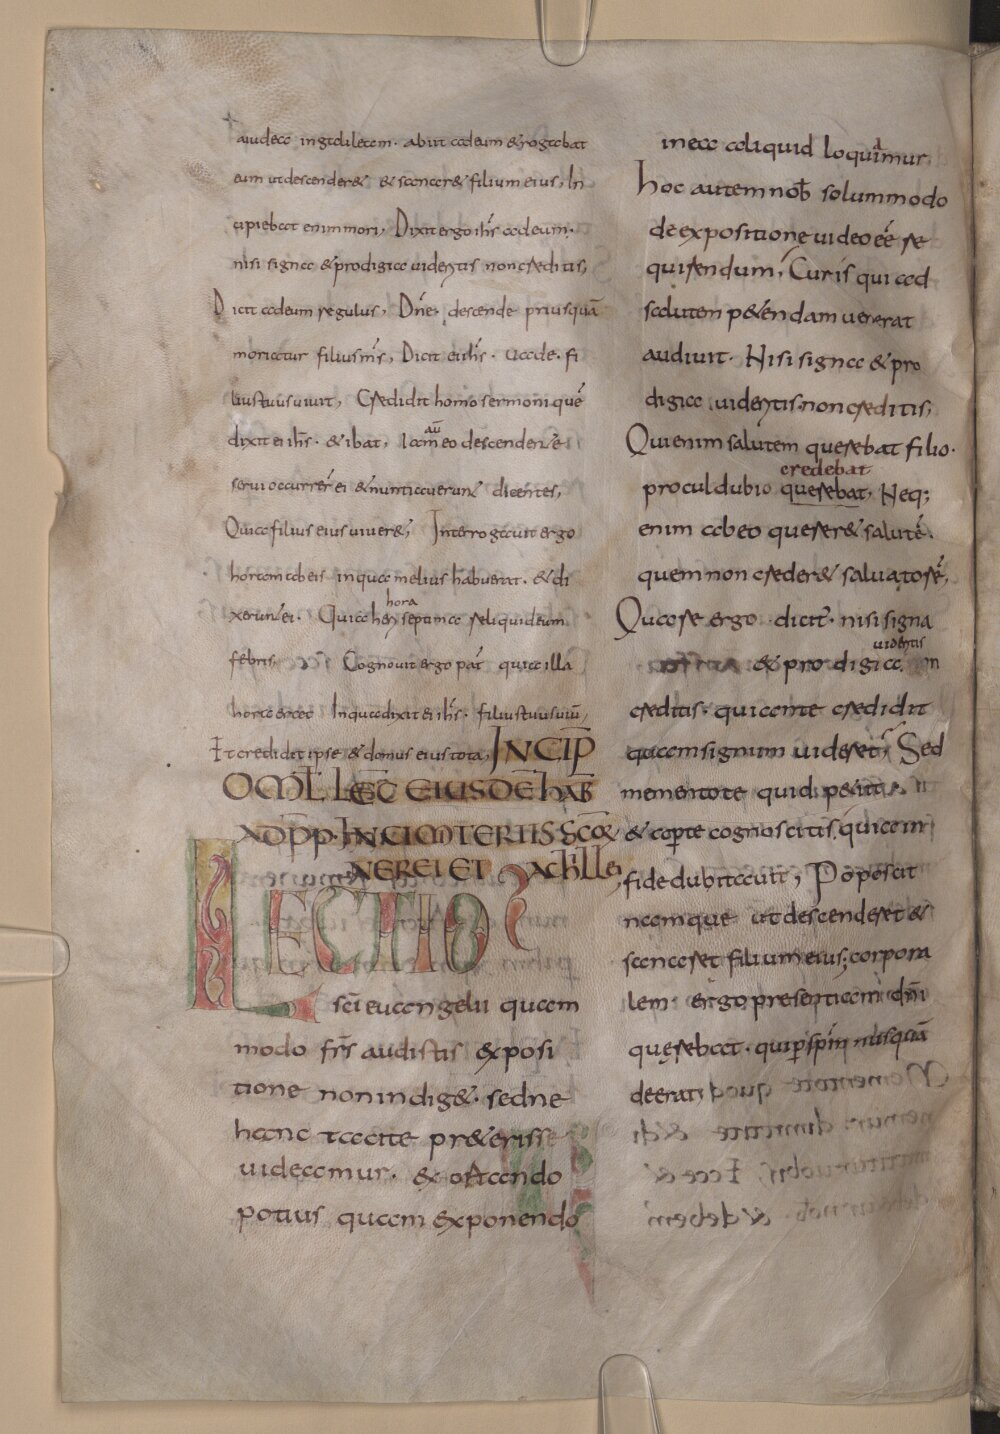 aiudea in galileam. abiit ad eum & rogabat
eum ut descender& & sanar& filium eius, In
cipiebat enim mori, Dixit ergo ihs ad eum.
nisi signa & prodigia videritis non creditis,
Dicit ad eum regulus, Dne. descende priusquā
moriatur filius ms, Dicit ei ihs. vade. fi
lius tuus vivit, Credidit homo sermoni quē
dixit ei ihs. & ibat, Iam aū eo descendente
servi occurrer ei & nuntiaverunt dicentes,
Quia filius eius viver&, Interrogavit ergo
horam ab eis in qua melius habuerat. & di
xerunt ei. Quia heri hora septima reliquid eum
febris, Cognovit ergo pat quia illa
hora erat In qua dixit ei ihs. filius tuus viv̄,
Et credidit ipse & domus eius tota, INCIP
OML LEC EIUSDE HAB
AD PP. IN CIMITERII SCOR
NEREI ET ACHILLEI
LECTIO
sci euangelii quam
modo frs audistis exposi
tione non indig&. sed ne
hanc tacite pr&erisse
videamur. & ortando
potius quam exponendo
in ea aliquid loquamur
hoc autem nob solummodo
de expositione video eē re
quirendum, Cur is qui ad
salutem p&endam venerat
audivit. Nisi signa & pro
digia videritis non creditis,
Qui enim salutem querebat filio.
procul dubio querebat, Neq;
credebat
enim ab eo querer& salutē.
quem non creder& salvatorē,
Quare ergo dicit. nisi signa
& prodigia videritis non
creditis. qui ante credidit
quam signum videret, Sed
mementote quid petiit
& apte cognoscitis. quia in
fide dubitavit, Poposcit
namque ut descenderet &
sanaret filium eius; corpora
lem ergo presentiam dñi
querebat. qui p spm nusquā
deerat,